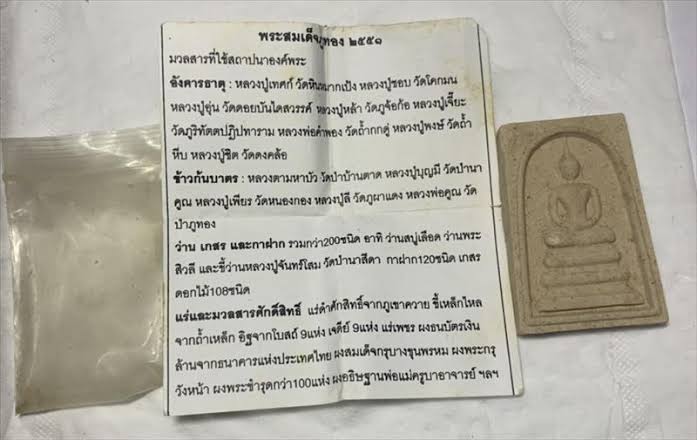 พระสมเด็จภูทอง ๒๕๕๑
มวลสารที่ใช้สถาปนาองค์พระ
อังคารธาตุ : หลวงปู่เทศก์ วัดหินหมากเป้ง หลวงปู่ชอบ วัดโคกมน
หลวงปู่อุ่น วัดดอยบันไดสวรรค์ หลวงปู่หล้า วัดภูจ้อก้อ หลวงปู่เจี๊ยะ
วัดภูริทัตตปฏิปทาราม หลวงพ่อคำพอง วัดถ้ำกกดู่ หลวงปู่พงษ์ วัดถ้ำ
หีบ หลวงปู่ชิต วัดดงคล้อ
ข้าวก้นบาตร : หลวงตามหาบัว วัดป่าบ้านตาด หลวงปู่บุญมี วัดป่านา
คูณ หลวงปู่เพียร วัดหนองกอง หลวงปู่ลี วัดภูผาแดง หลวงพ่อคูณ วัด
ป่าภูทอง
ว่าน เกสร และกาฝาก รวมกว่า200ชนิด อาทิ ว่านสบู่เลือด ว่านพระ
สิวลี และขี้ว่านหลวงปู่จันทร์โสม วัดป่านาสีดา กาฝาก120ชนิด เกสร
ดอกไม้108ชนิด
แร่และมวลสารศักดิ์สิทธิ์ แร่ดำศักสิทธิ์จากภูเขาควาย ขี้เหล็กไหล
จากถ้ำเหล็ก อิฐจากโบสถ์ 9แห่ง เจดีย์ 9แห่ง แร่เพชร ผงธนบัตรเงิน
ล้านจากธนาคารแห่งประเทศไทย ผงสมเด็จกรุบางขุนพรหม ผงพระกรุ
วังหน้า ผงพระชำรุดกว่า100แห่ง ผงอธิษฐานพ่อแม่ครูบาอาจารย์ ฯลฯ